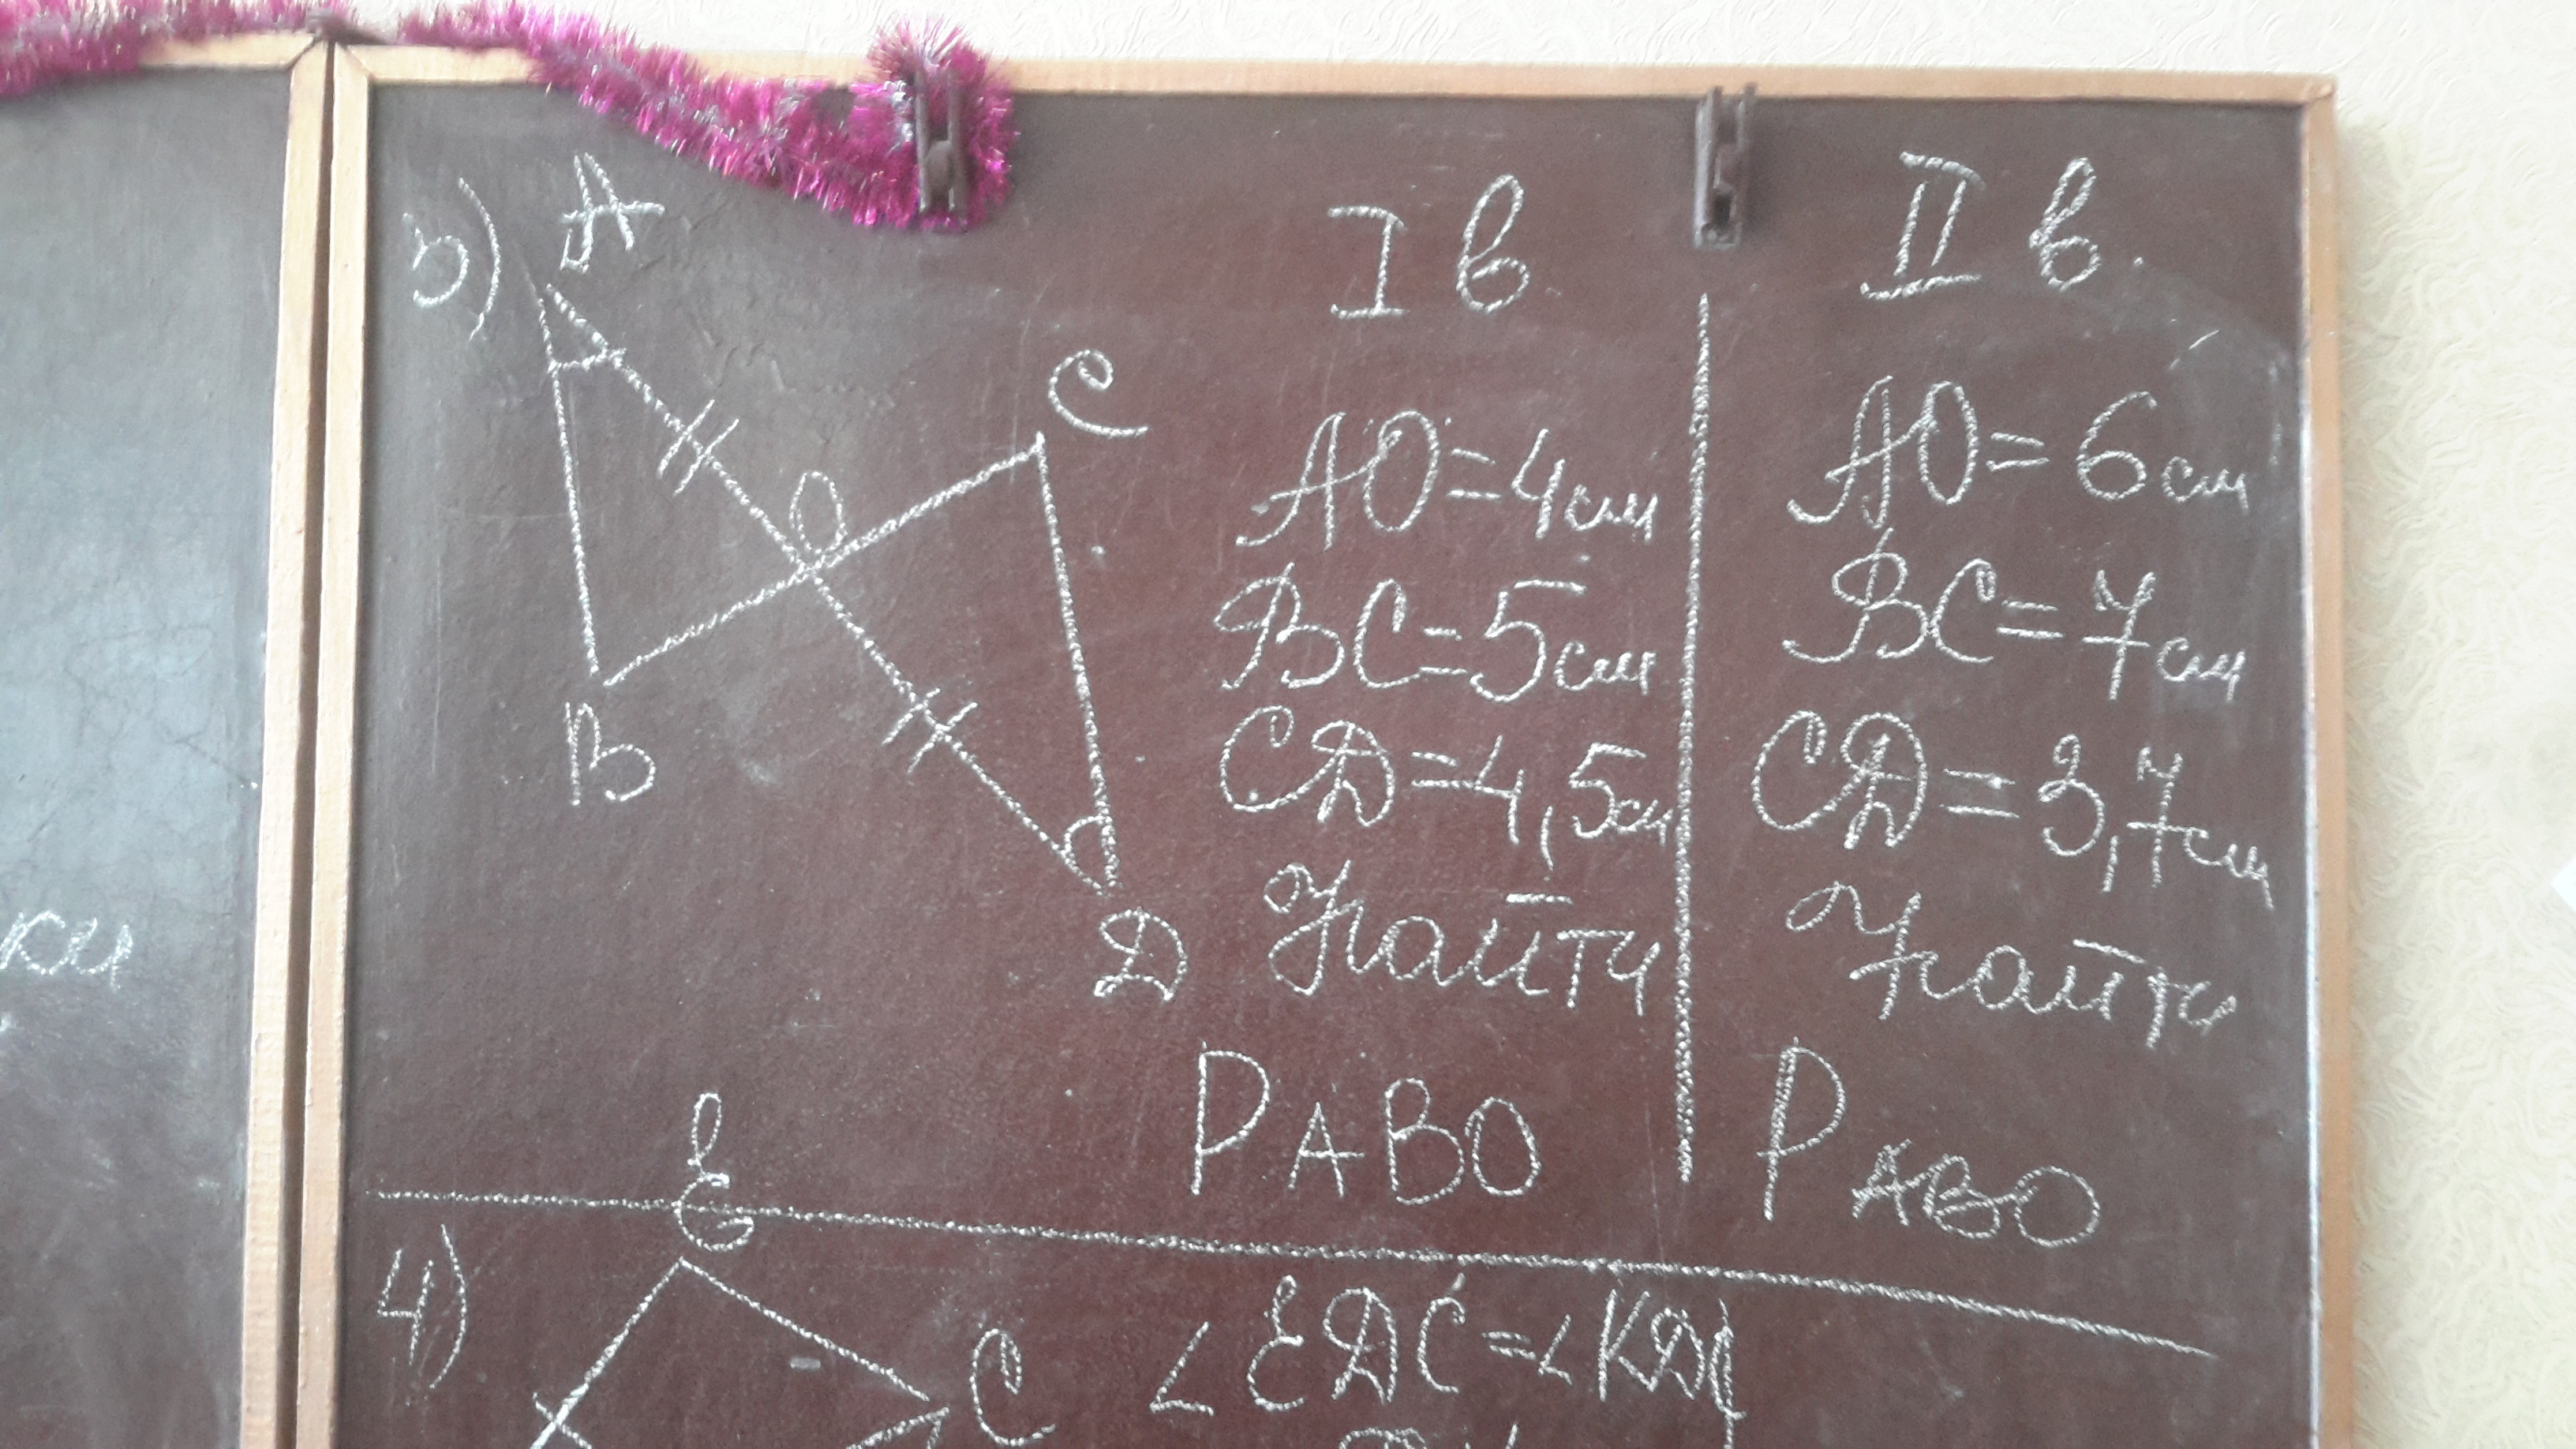 ки
3)
A
C
O
B
D
I в
AO=4см
BC=5см
CD=4,5см
Найти
P ABO
II в.
AO=6см
BC=7см
CD=3,7см
Найти
P ABO
4)
E
C
∠EDC=∠KDC